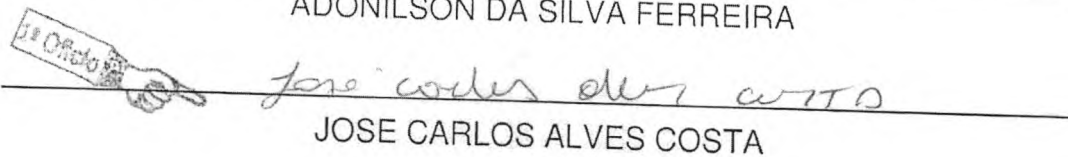 ADONILSON DA SILVA FERREIRA
1º Ofício
José Carlos Alves Costa
JOSE CARLOS ALVES COSTA